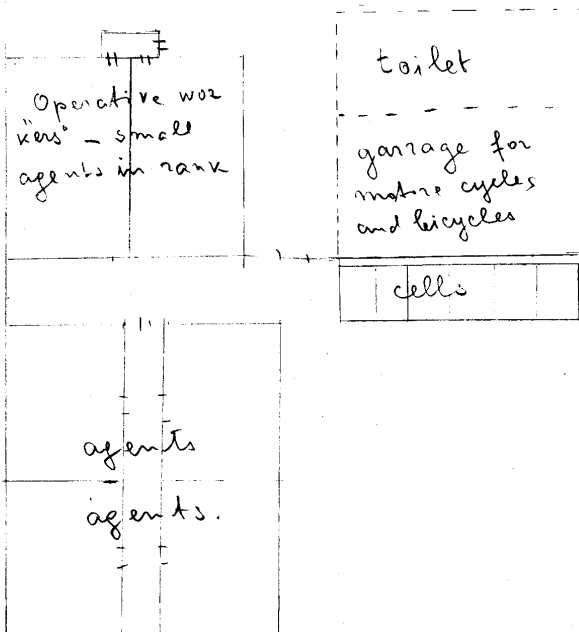 Operative wor
kers" – small
agents in rank
toilet
garrage for
motore cycles
and bicycles
cells
agents
agents.